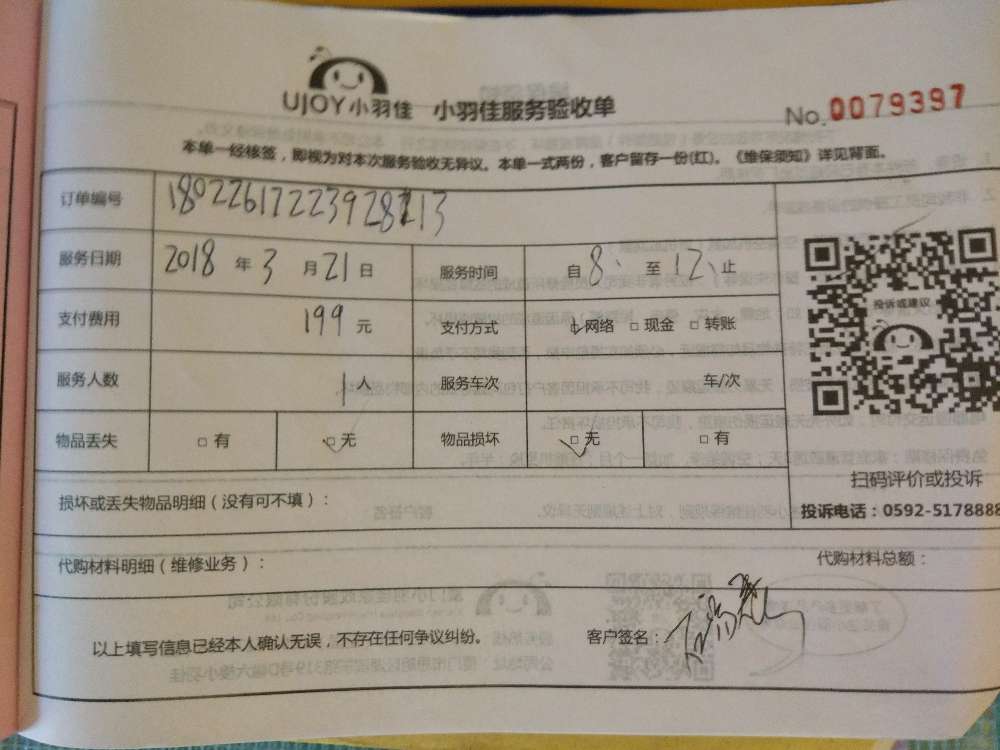 UJOY小羽佳 小羽佳服务验收单
No.0079397
本单一经核签，即视为对本次服务验收无异议。本单一式两份，客户留存一份(红)。《维保须知》详见背面。
订单编号
服务日期 2018 年 3 月 21 日 服务时间 自 8: 至 12: 止
支付费用 199 元 支付方式 ☑网络 □现金 □转账
投诉或建议
服务人数 1人 服务车次 车/次
物品丢失 □有 ☑无 物品损坏 ☑无 □有
扫码评价或投诉
损坏或丢失物品明细（没有可不填）：
投诉电话：0592-5178888
代购材料明细（维修业务）：
代购材料总额：
以上填写信息已经本人确认无误，不存在任何争议纠纷。
客户签名：